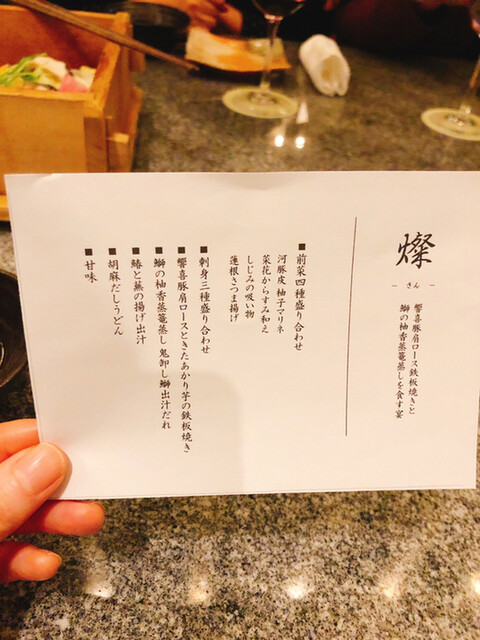 燦
― さん ―
響喜豚肩ロース鉄板焼きと
鰤の柚香蒸篭蒸しを食す宴
■前菜四種盛り合わせ
河豚皮 柚子マリネ
菜花からすみ和え
しじみの吸い物
蓮根さつま揚げ
■刺身三種盛り合わせ
■響喜豚肩ロースときたあかり芋の鉄板焼き
■鰤の柚香蒸篭蒸し 鬼卸し鰤出汁だれ
■鰆と蕪の揚げ出汁
■胡麻だしうどん
■甘味